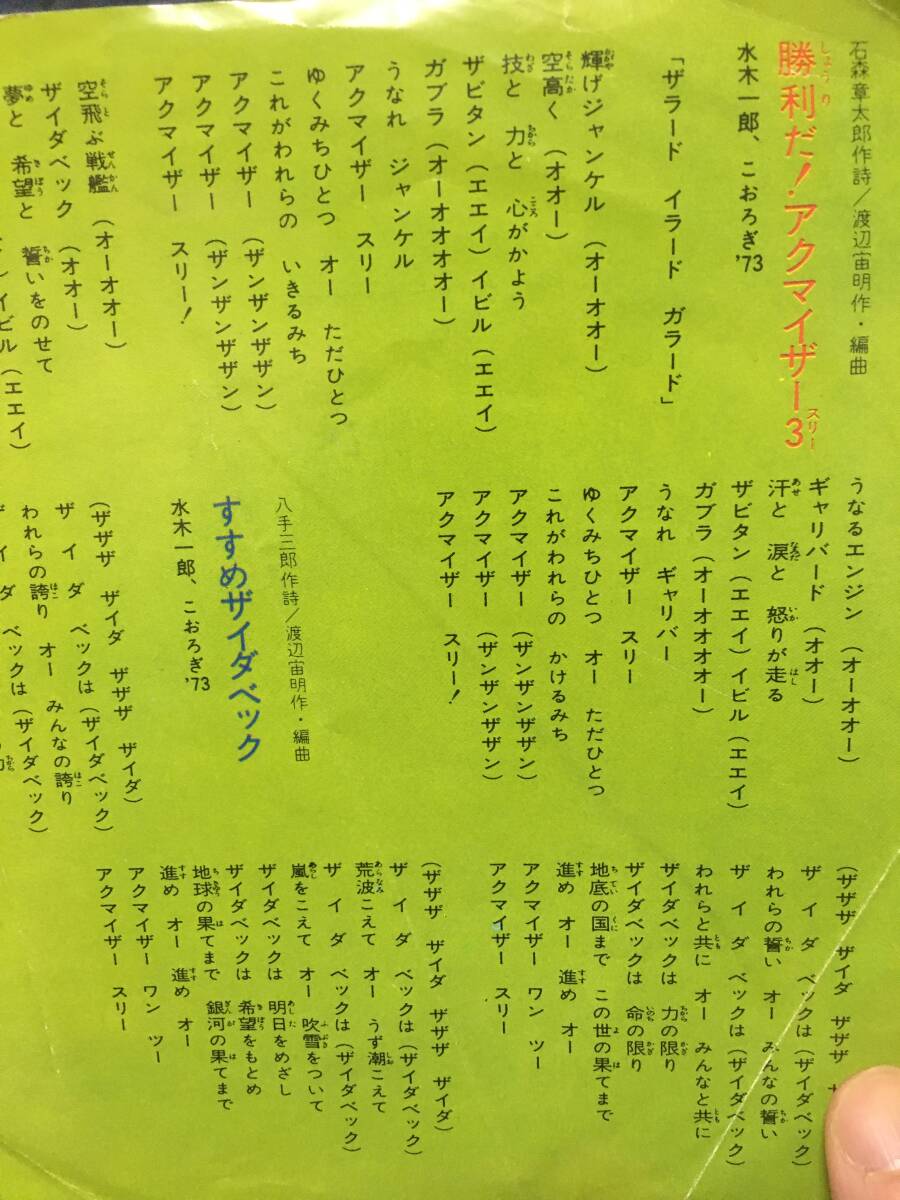 石森章太郎作詩/渡辺宙明作・編曲
勝利だ!アクマイザー3
水木一郎、こおろぎ'73
「ザラード イラード ガラード」
輝げジャンケル (オーオオー)
空高く (オオー)
技と 力と 心がかよう
ザビタン (エエイ) イビル (エエイ)
ガブラ (オーオオオオー)
うなれ ジャンケル
アクマイザー スリー
ゆくみちひとつ オー ただひとつ
これがわれらの いきるみち
アクマイザー (ザンザンザザン)
アクマイザー (ザンザンザザン)
アクマイザー スリー!
空飛ぶ戦艦 (オーオオー)
ザイダベック (オオー)
夢と 希望と 誓いをのせて
イビル (エエイ)
うなるエンジン (オーオオー)
ギャリバード (オオー)
汗と 涙と 怒りが走る
ザビタン (エエイ) イビル (エエイ)
ガブラ (オーオオオオー)
うなれ ギャリバー
アクマイザー スリー
ゆくみちひとつ オー ただひとつ
これがわれらの かけるみち
アクマイザー (ザンザンザザン)
アクマイザー (ザンザンザザン)
アクマイザー スリー!
八手三郎作詩/渡辺宙明作・編曲
すすめザイダベック
水木一郎、こおろぎ'73
(ザザザ ザイダ ザザザ ザイダ)
ザ イ ダ ベックは (ザイダベック)
われらの誇り オー みんなの誇り
ザ イ ダ ベックは (ザイダベック)
(ザザザ ザイダ ザザザ
ザ イ ダ ベックは (ザイダベック)
われらの誓い オー みんなの誓い
ザ イ ダ ベックは (ザイダベック)
われらと共に オー みんなと共に
ザイダベックは 力の限り
ザイダベックは 命の限り
地底の国まで この世の果てまで
進め オー 進め オー
アクマイザー ワン ツー
アクマイザー スリー
(ザザザ ザイダ ザザザ ザイダ)
ザ イ ダ ベックは (ザイダベック)
荒波こえて オー うず潮こえて
ザ イ ダ ベックは (ザイダベック)
嵐をこえて オー 吹雪をついて
ザイダベックは 明日をめざし
ザイダベックは 希望をもとめ
地球の果てまで 銀河の果てまで
進め オー 進め オー
アクマイザー ワン ツー
アクマイザー スリー